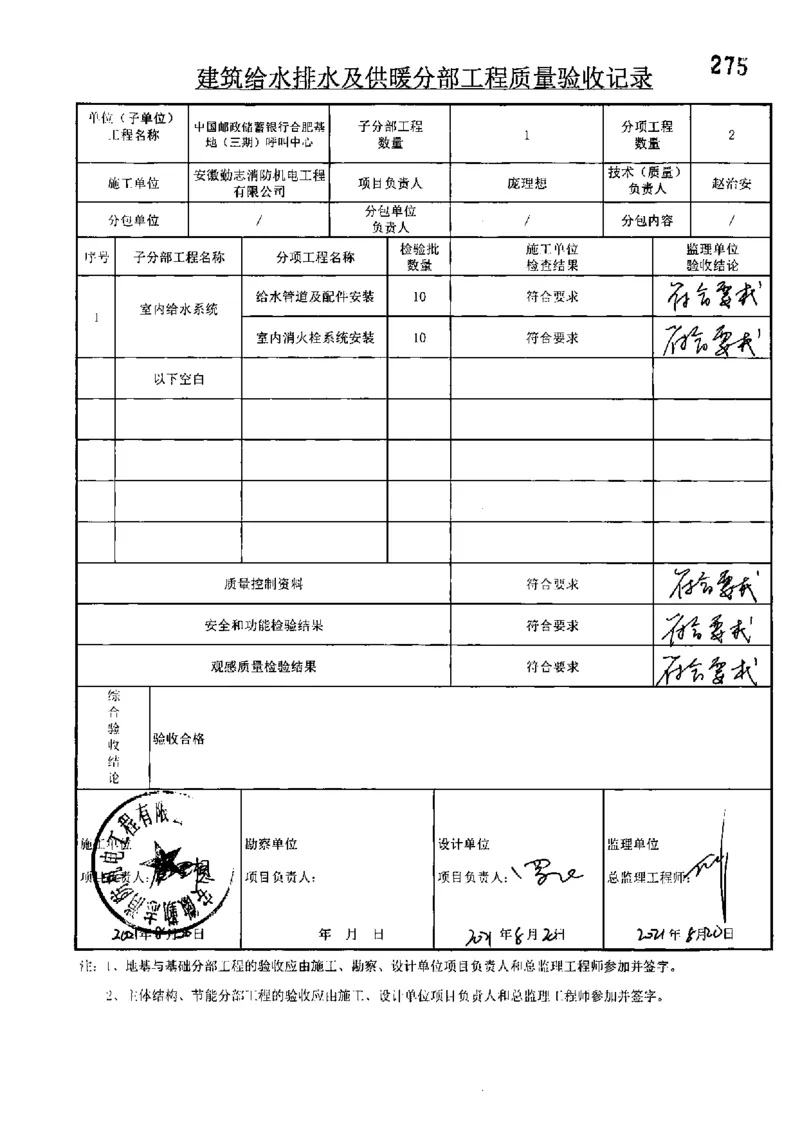 275
建筑给水排水及供暖分部工程质量验收记录
单位（子单位）
工程名称
中国邮政储蓄银行合肥基
地（三期）呼叫中心
子分部工程
数量
1
分项工程
数量
2
施工单位
安徽勤志消防机电工程
有限公司
项目负责人
庞理想
技术（质量）
负责人
赵治安
分包单位
/
分包单位
负责人
/
分包内容
/
序号
子分部工程名称
分项工程名称
检验批
数量
施工单位
检查结果
监理单位
验收结论
1
室内给水系统
给水管道及配件安装
10
符合要求
符合要求
室内消火栓系统安装
10
符合要求
符合要求
以下空白
质量控制资料
符合要求
符合要求
安全和功能检验结果
符合要求
符合要求
观感质量检验结果
符合要求
符合要求
综
合
验
收
结
论
验收合格
施工单位
项目负责人：
2021年8月20日
安徽勤志消防机电工程有限
勘察单位
项目负责人：
年 月 日
设计单位
项目负责人：
2021年8月20日
监理单位
总监理工程师：
2021年8月20日
注：1、地基与基础分部工程的验收应由施工、勘察、设计单位项目负责人和总监理工程师参加并签字。
2、主体结构、节能分部工程的验收应由施工、设计单位项目负责人和总监理工程师参加并签字。